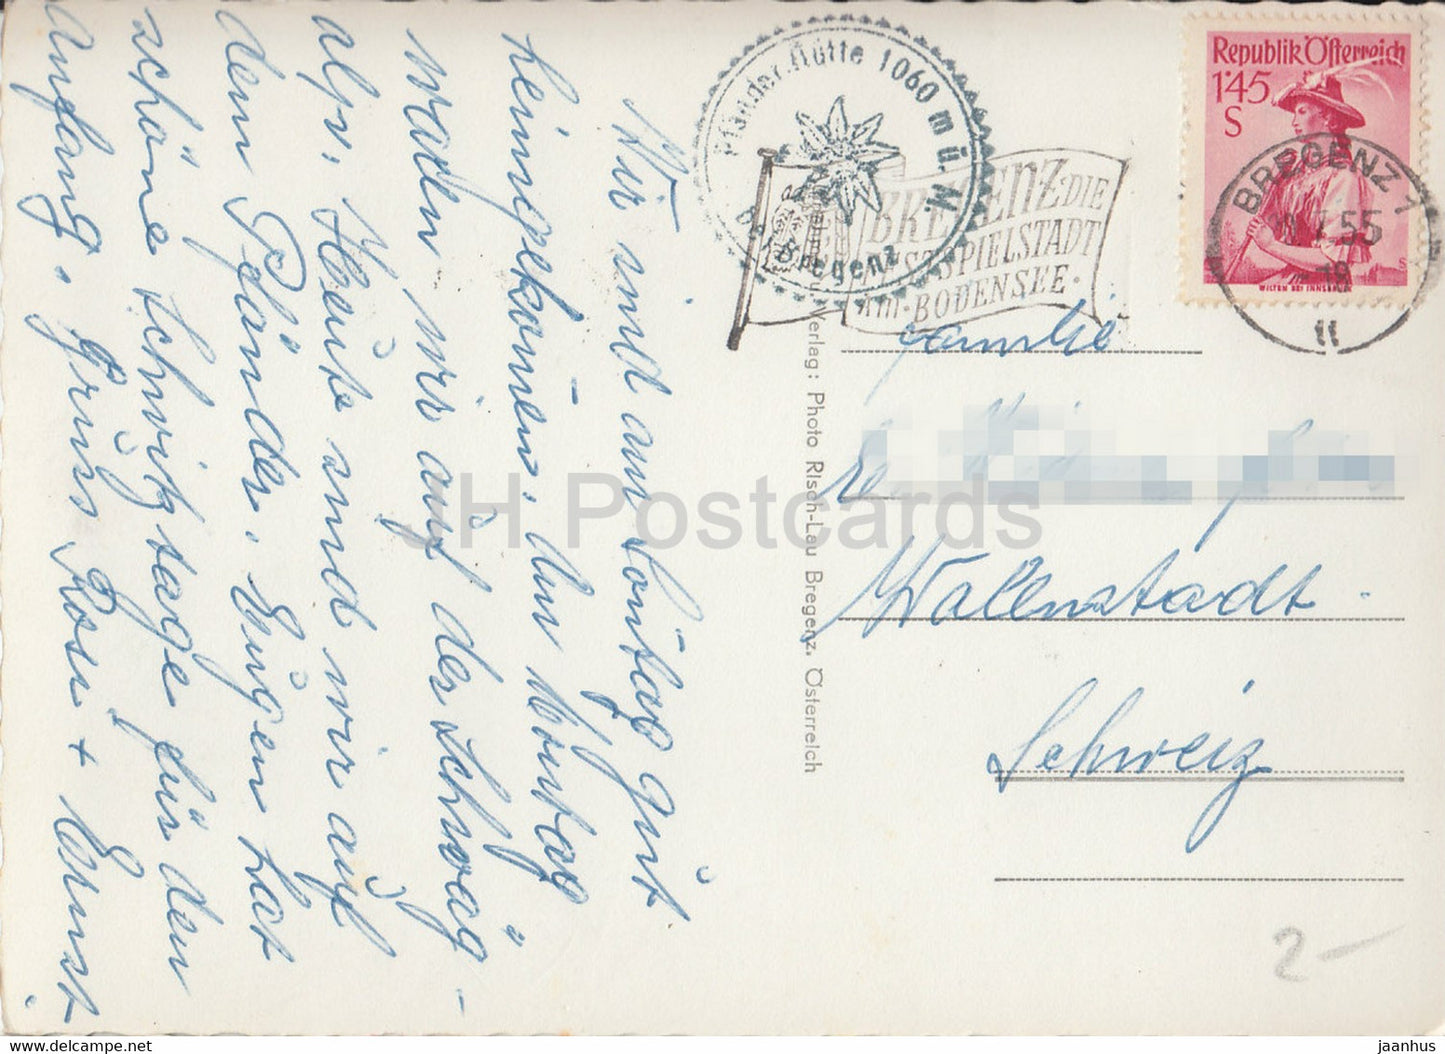 Wir sind am Sontag gut
heimgekomen. Am Montag
waren wir auf der Schwäg-
alp. Heute sind wir auf
dem Pfänder. Eugen hat
schöne Schwitztage für den
Anfang. Gruss Rosi + Ernst.
Pfänder.Hütte 1060 m ü. M.
Bregenz
BREGENZ·DIE
FESTSPIELSTADT
AM·BODENSEE·
Republik Österreich
1·45
S
WILTEN BEI INNSBRUCK
BREGENZ 1
7.55
Verlag: Photo Risch-Lau Bregenz, Österreich
Familie
Wallenstadt.
Schweiz
2-
JH Postcards
www.delcampe.net
jaanhus